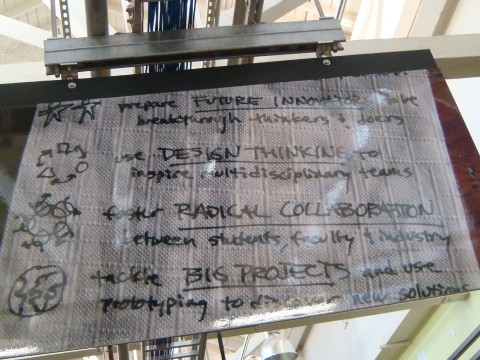 prepare FUTURE INNOVATORS to be
breakthrough thinkers & doers
use DESIGN THINKING to
inspire multidisciplinary teams
foster RADICAL COLLABORATION
between students, faculty & industry
tackle BIG PROJECTS and use
prototyping to discover new solutions